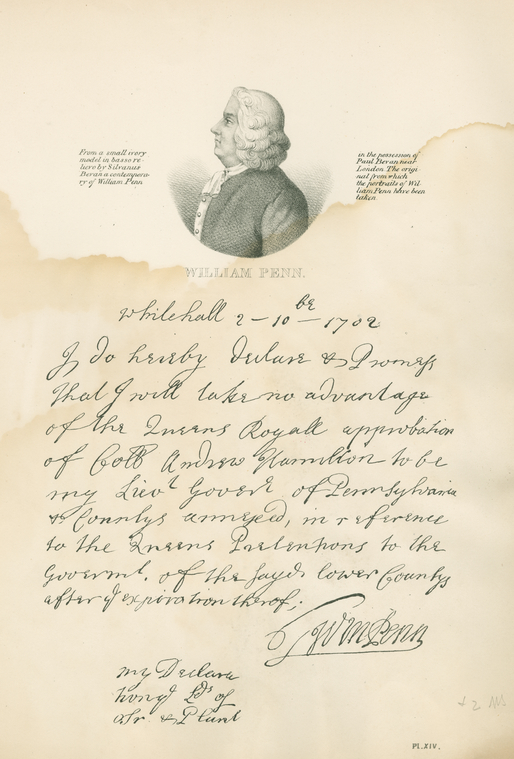 From a small ivory
model in basso re-
lievo by Silvanus
Bevan a contempora-
ry of William Penn
in the possession of
Paul Bevan near
London The origi
nal from which
the portraits of Wil
liam Penn have been
taken
WILLIAM PENN.
Whitehall 2 - 10 be - 1702
I do hereby Declare & Promess
that I will take no advantage
of the Queens Royall approbation
of Coll Andrew Hamilton to be
my Lieut Govern of Pennsylvania
& Countys annexed, in reference
to the Queens Pretentions to the
Governmt. of the sayd lower Countys
after ye expiration therof;
Wm Penn
my Declara
to ye Lds of
Tr & Plant
Pl. XIV.